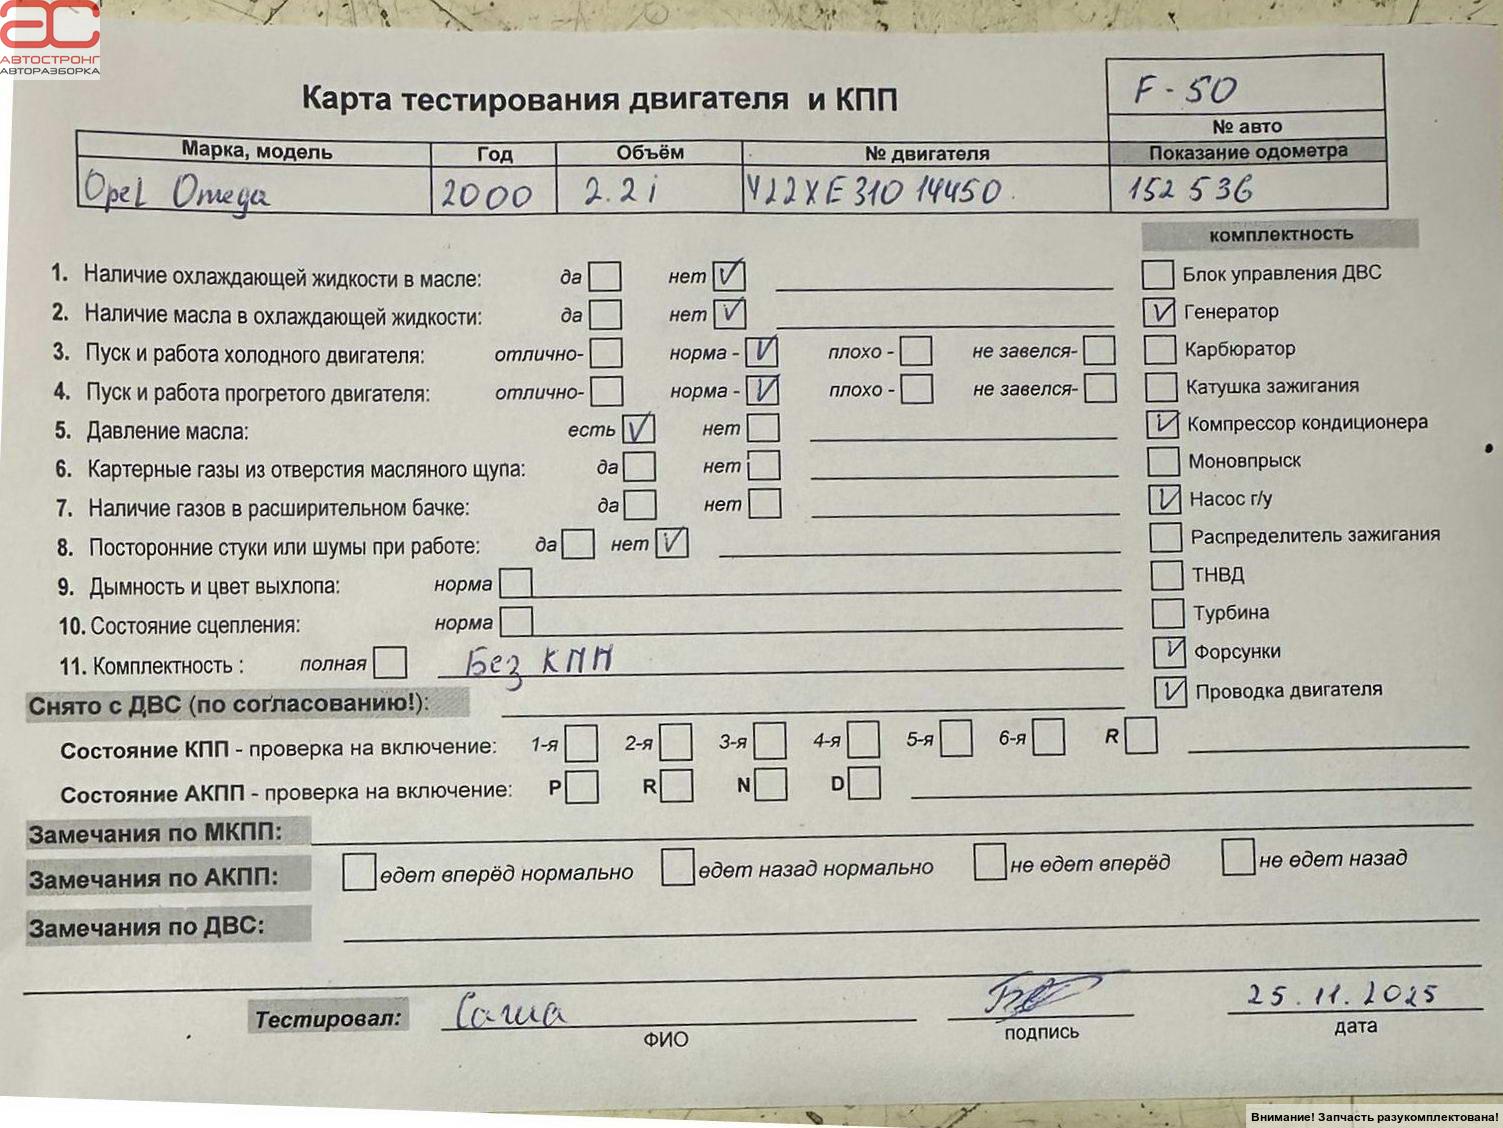 АС
АВТОСТРОНГ
АВТОРАЗБОРКА
F-50
№ авто
Карта тестирования двигателя и КПП
Марка, модель Год Объём № двигателя Показание одометра
Opel Omega 2000 2.2i Y22XE31014450 152 536
комплектность
1. Наличие охлаждающей жидкости в масле: да нет V Блок управления ДВС
2. Наличие масла в охлаждающей жидкости: да нет V V Генератор
3. Пуск и работа холодного двигателя: отлично- норма - V плохо - не завелся- Карбюратор
4. Пуск и работа прогретого двигателя: отлично- норма - V плохо - не завелся- Катушка зажигания
5. Давление масла: есть V нет V Компрессор кондиционера
6. Картерные газы из отверстия масляного щупа: да нет Моновпрыск
7. Наличие газов в расширительном бачке: да нет V Насос г/у
8. Посторонние стуки или шумы при работе: да нет V Распределитель зажигания
9. Дымность и цвет выхлопа: норма ТНВД
10. Состояние сцепления: норма Турбина
11. Комплектность : полная Без КПП V Форсунки
Снято с ДВС (по согласованию!): V Проводка двигателя
Состояние КПП - проверка на включение: 1-я 2-я 3-я 4-я 5-я 6-я R
Состояние АКПП - проверка на включение: P R N D
Замечания по МКПП:
Замечания по АКПП: едет вперёд нормально едет назад нормально не едет вперёд не едет назад
Замечания по ДВС:
Тестировал: Саша 25.11.2025
ФИО подпись дата
Внимание! Запчасть разукомплектована!